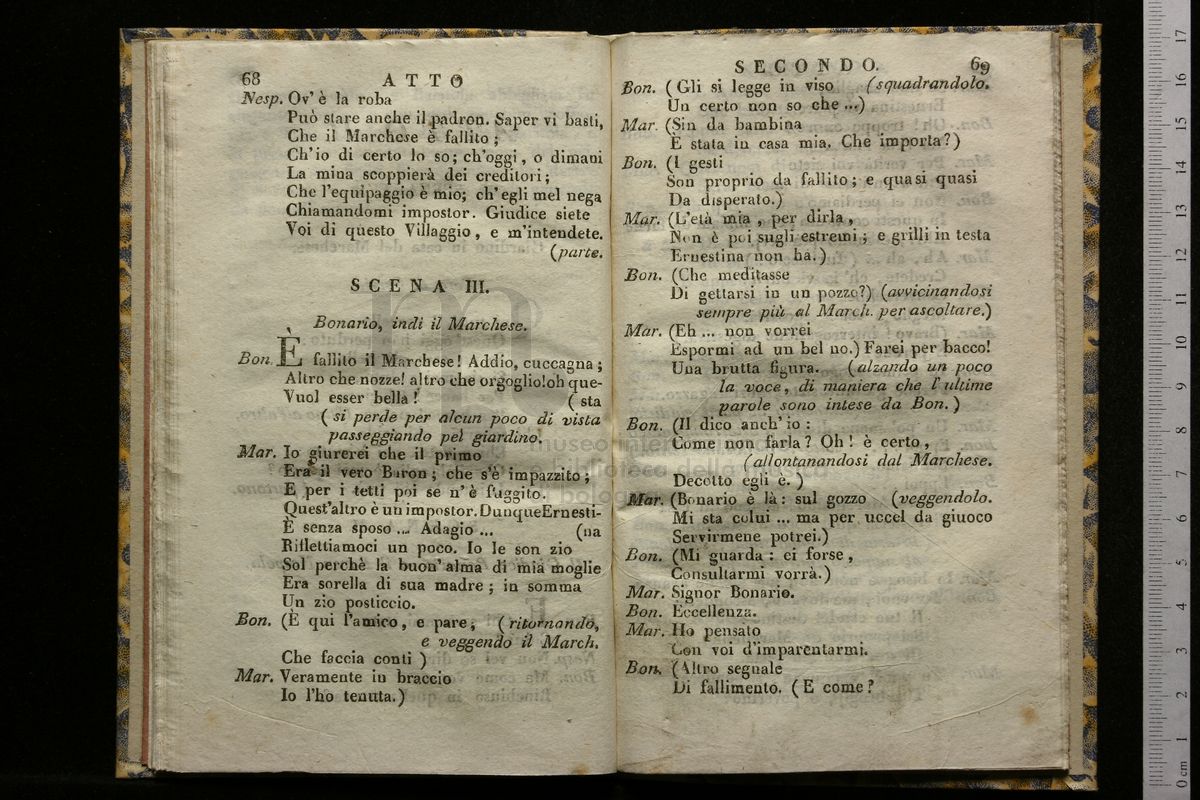 68
ATTO
Nesp. Ov' è la roba
Può stare anche il padron. Saper vi basti,
Che il Marchese è fallito ;
Ch'io di certo lo so; ch'oggi, o dimani
La mina scoppierà dei creditori;
Che l'equipaggio è mio; ch'egli mel nega
Chiamandomi impostor. Giudice siete
Voi di questo Villaggio, e m'intendete.
(parte.
SCENA III.
Bonario, indi il Marchese.
Bon. È fallito il Marchese! Addio, cuccagna ;
Altro che nozze! altro che orgoglio! oh que-
Vuol esser bella! (sta
(si perde per alcun poco di vista
passeggiando pel giardino.
Mar. Io giurerei che il primo
Era il vero Baron; che s'è impazzito;
E per i tetti poi se n'è fuggito.
Quest'altro è un impostor. Dunque Ernesti-
È senza sposo ... Adagio ... (na
Riflettiamoci un poco. Io le son zio
Sol perchè la buon' alma di mia moglie
Era sorella di sua madre ; in somma
Un zio posticcio.
Bon. (È qui l'amico, e pare, (ritornando,
e veggendo il March.
Che faccia conti )
Mar. Veramente in braccio
Io l'ho tenuta.)
SECONDO. 69
Bon. (Gli si legge in viso (squadrandolo.
Un certo non so che ...)
Mar. (Sin da bambina
È stata in casa mia. Che importa?)
Bon. (I gesti
Son proprio da fallito; e quasi quasi
Da disperato.)
Mar. (L'età mia , per dirla ,
Non è poi sugli estremi ; e grilli in testa
Ernestina non ha.)
Bon. (Che meditasse
Di gettarsi in un pozzo?) (avvicinandosi
sempre più al March. per ascoltare.)
Mar. (Eh ... non vorrei
Espormi ad un bel no.) Farei per bacco!
Una brutta figura. (alzando un poco
la voce, di maniera che l'ultime
parole sono intese da Bon.)
Bon. (Il dico anch' io :
Come non farla ? Oh ! è certo ,
(allontanandosi dal Marchese.
Decotto egli è. )
Mar. (Bonario è là : sul gozzo (veggendolo.
Mi sta colui ... ma per uccel da giuoco
Servirmene potrei.)
Bon. (Mi guarda : ei forse ,
Consultarmi vorrà.)
Mar. Signor Bonario.
Bon. Eccellenza.
Mar. Ho pensato
Con voi d'imparentarmi.
Bon. (Altro segnale
Di fallimento. ( E come ?